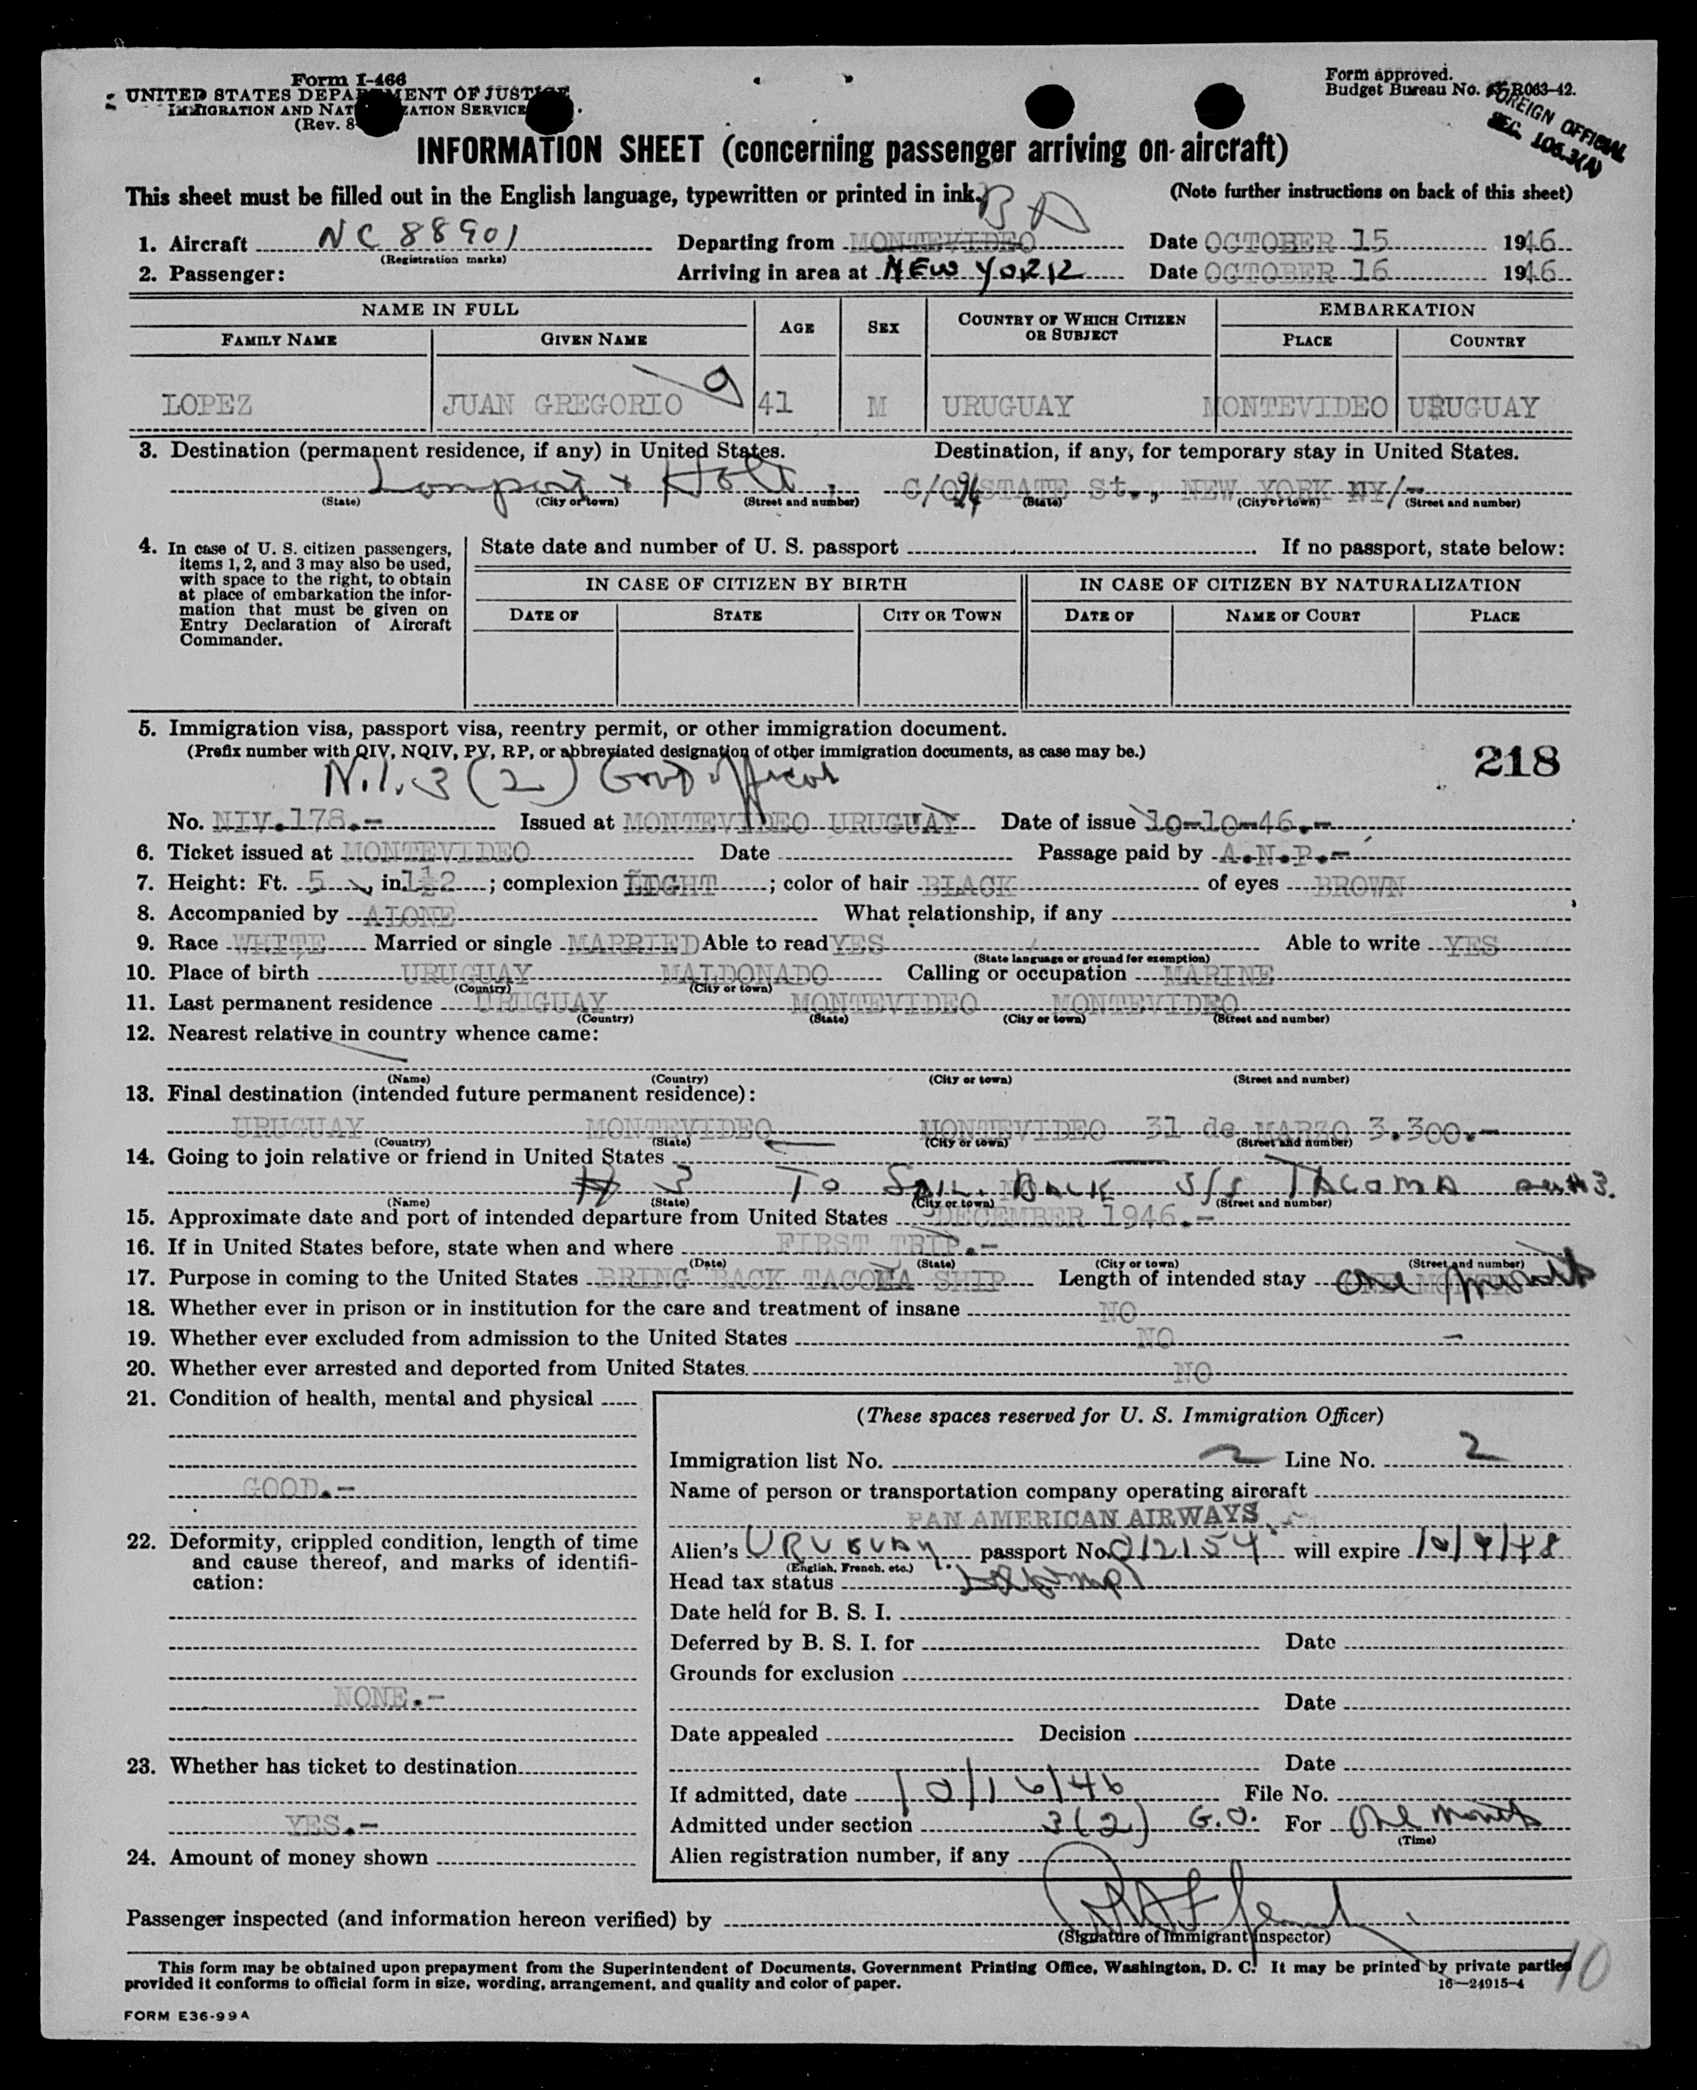 Form I-466
UNITED STATES DEPARTMENT OF JUSTICE
IMMIGRATION AND NATURALIZATION SERVICE
(Rev. 8-
Form approved.
Budget Bureau No. R063-42.
FOREIGN OFFICIAL
SEC. 105.3(A)
INFORMATION SHEET (concerning passenger arriving on aircraft)
This sheet must be filled out in the English language, typewritten or printed in ink. (Note further instructions on back of this sheet)
BA
1. Aircraft NC 88901 Departing from MONTEVIDEO Date OCTOBER 15 1946
(Registration marks)
2. Passenger: Arriving in area at NEW YORK Date OCTOBER 16 1946
NAME IN FULL AGE SEX COUNTRY OF WHICH CITIZEN OR SUBJECT EMBARKATION
FAMILY NAME GIVEN NAME PLACE COUNTRY
LOPEZ JUAN GREGORIO 41 M URUGUAY MONTEVIDEO URUGUAY
3. Destination (permanent residence, if any) in United States. Destination, if any, for temporary stay in United States.
Lamport & Holt, C/O 94 STATE St., NEW YORK NY/-
(State) (City or town) (Street and number) (State) (City or town) (Street and number)
4. In case of U. S. citizen passengers, items 1, 2, and 3 may also be used, with space to the right, to obtain at place of embarkation the information that must be given on Entry Declaration of Aircraft Commander.
State date and number of U. S. passport If no passport, state below:
IN CASE OF CITIZEN BY BIRTH IN CASE OF CITIZEN BY NATURALIZATION
DATE OF STATE CITY OR TOWN DATE OF NAME OF COURT PLACE
5. Immigration visa, passport visa, reentry permit, or other immigration document.
(Prefix number with QIV, NQIV, PV, RP, or abbreviated designation of other immigration documents, as case may be.)
218
N.I. 3 (2) Govt official
No. NIV.178.- Issued at MONTEVIDEO URUGUAY Date of issue 10-10-46.-
6. Ticket issued at MONTEVIDEO Date Passage paid by A.N.P.-
7. Height: Ft. 5, in. 1½2; complexion LIGHT; color of hair BLACK of eyes BROWN
8. Accompanied by ALONE What relationship, if any
9. Race WHITE Married or single MARRIED Able to read YES Able to write YES
(State language or ground for exemption)
10. Place of birth URUGUAY MALDONADO Calling or occupation MARINE
(Country) (City or town)
11. Last permanent residence URUGUAY MONTEVIDEO MONTEVIDEO
(Country) (State) (City or town) (Street and number)
12. Nearest relative in country whence came:
(Name) (Country) (City or town) (Street and number)
13. Final destination (intended future permanent residence):
URUGUAY MONTEVIDEO MONTEVIDEO 31 de MARZO 3.300.-
(Country) (State) (City or town) (Street and number)
14. Going to join relative or friend in United States
3 TO SAIL BACK S/S TACOMA
(Name) (State) (City or town) (Street and number)
15. Approximate date and port of intended departure from United States DECEMBER 1946.-
16. If in United States before, state when and where FIRST TRIP.-
(Date) (State) (City or town) (Street and number)
17. Purpose in coming to the United States BRING BACK TACOMA SHIP Length of intended stay One month
18. Whether ever in prison or in institution for the care and treatment of insane NO
19. Whether ever excluded from admission to the United States NO -
20. Whether ever arrested and deported from United States. NO
21. Condition of health, mental and physical
GOOD.-
22. Deformity, crippled condition, length of time and cause thereof, and marks of identification:
NONE.-
23. Whether has ticket to destination
YES.-
24. Amount of money shown
(These spaces reserved for U. S. Immigration Officer)
Immigration list No. 2 Line No. 2
Name of person or transportation company operating aircraft
PAN AMERICAN AIRWAYS
Alien's URUGUAY passport No. 012154 will expire 10/9/48
(English, French, etc.)
Head tax status Exempt
Date held for B. S. I.
Deferred by B. S. I. for Date
Grounds for exclusion
Date
Date appealed Decision
Date
If admitted, date 10/16/46 File No.
Admitted under section 3(2) G.O. For One month
(Time)
Alien registration number, if any
Passenger inspected (and information hereon verified) by
(Signature of Immigrant Inspector)
This form may be obtained upon prepayment from the Superintendent of Documents, Government Printing Office, Washington, D. C. It may be printed by private parties
provided it conforms to official form in size, wording, arrangement, and quality and color of paper. 16—24915-4
10
FORM E36-99A